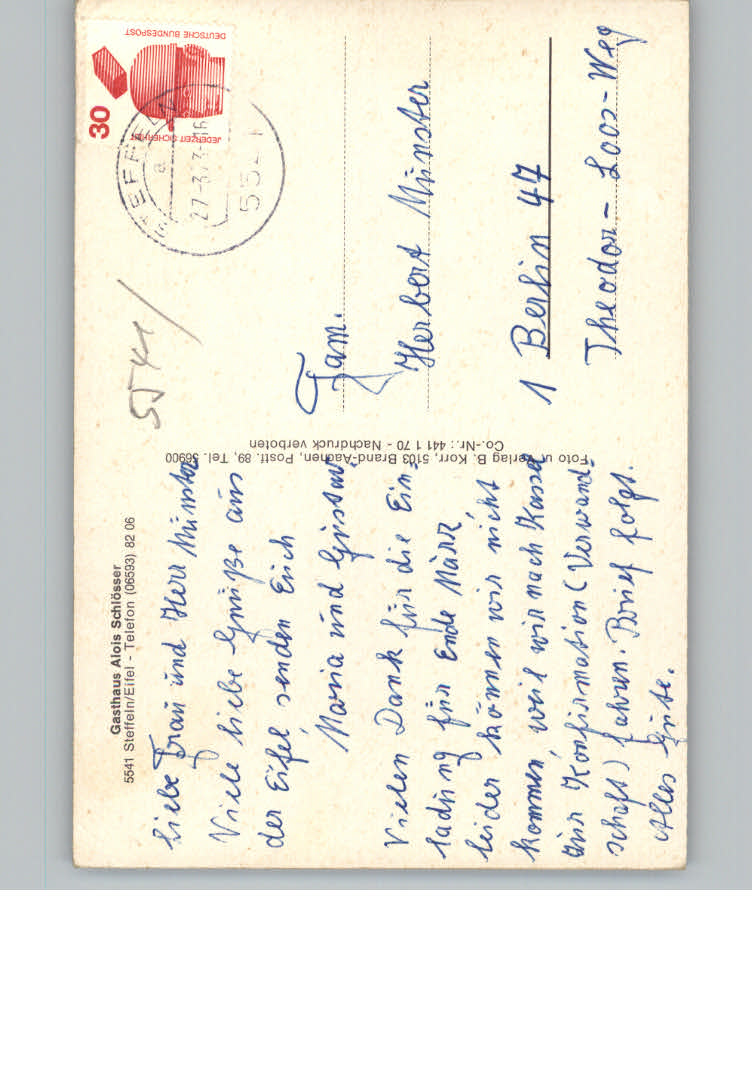 Gasthaus Alois Schlösser
5541 Steffeln/Eifel - Telefon (06593) 82 06
Liebe Frau und Herr Münster
Viele liebe Grüße aus
der Eifel senden Euch
Maria und Gustav.
Vielen Dank für die Ein-
ladung für Ende März
leider können wir nicht
kommen, weil wir nach Kassel
zur Konfirmation (Verwand-
schaft) fahren. Brief folgt.
Alles Gute.
Foto u. Verlag B. Korr, 5103 Brand-Aachen, Postf. 89, Tel. 56900
Co.-Nr.: 441 1 70 - Nachdruck verboten
5541/
DEUTSCHE BUNDESPOST
30
JEDERZEIT SICHERHEIT
STEFFELN
a
27-3.73-16
5541
Fam.
Herbert Münster
1 Berlin 47
Theodor-Loos-Weg